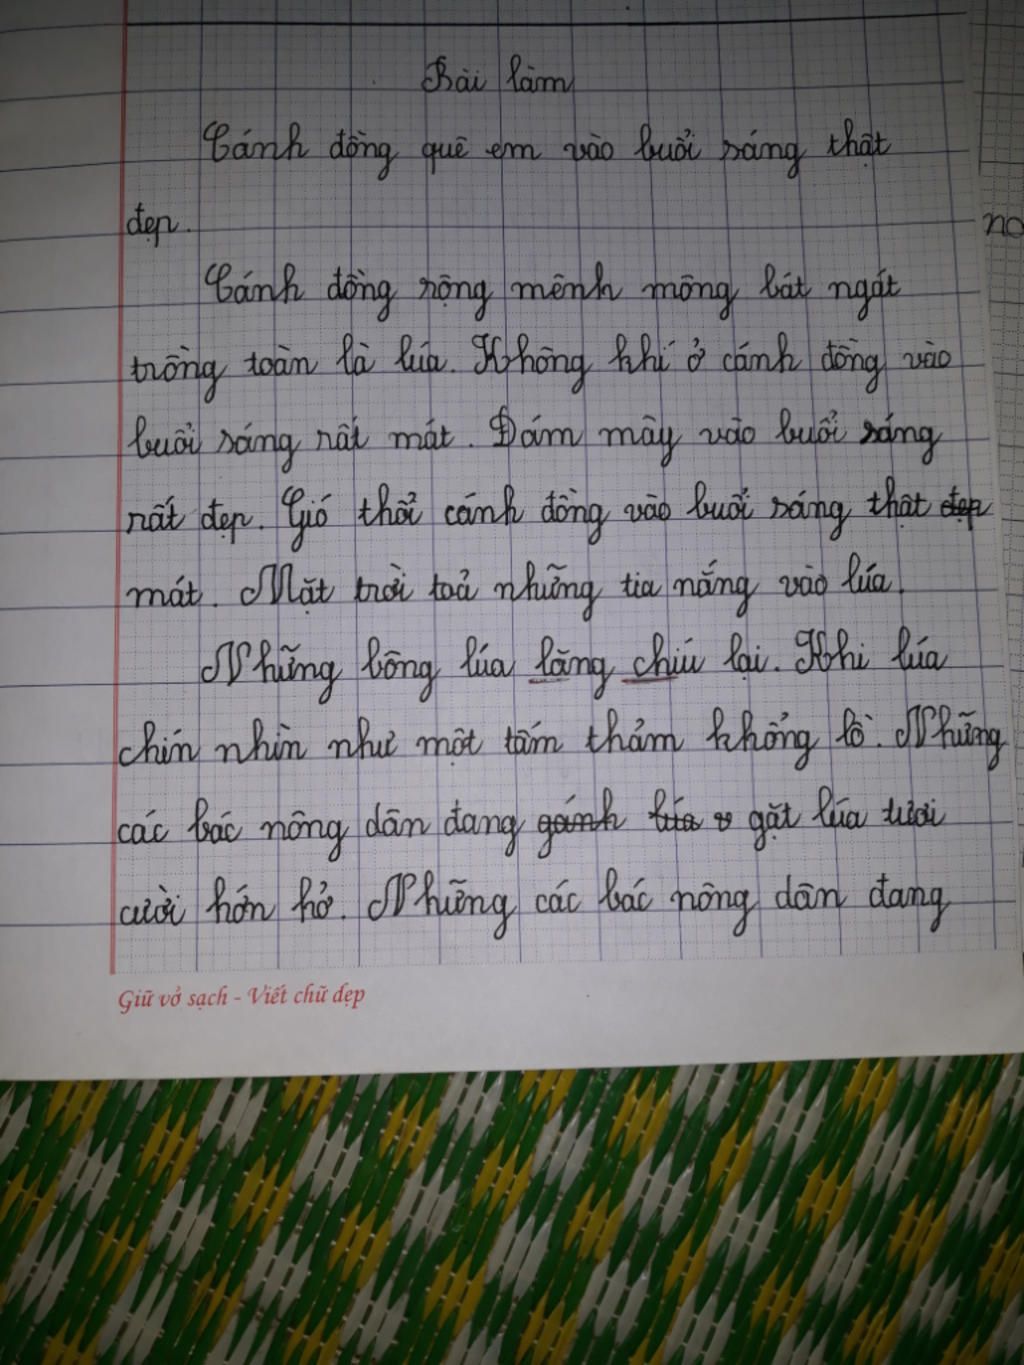 Bài làm
Cánh đồng quê em vào buổi sáng thật
đẹp.
Cánh đồng rộng mênh mông bát ngát
trồng toàn là lúa. Không khí ở cánh đồng vào
buổi sáng rất mát. Đám mây vào buổi sáng
rất đẹp. Gió thổi cánh đồng vào buổi sáng thật đẹp
mát. Mặt trời toả những tia nắng vào lúa.
Những bông lúa lăng chíu lại. Khi lúa
chín nhìn như một tấm thảm khổng lồ. Những
các bác nông dân đang gánh lúa v gặt lúa tươi
cười hớn hở. Những các bác nông dân đang
Giữ vở sạch - Viết chữ đẹp
no